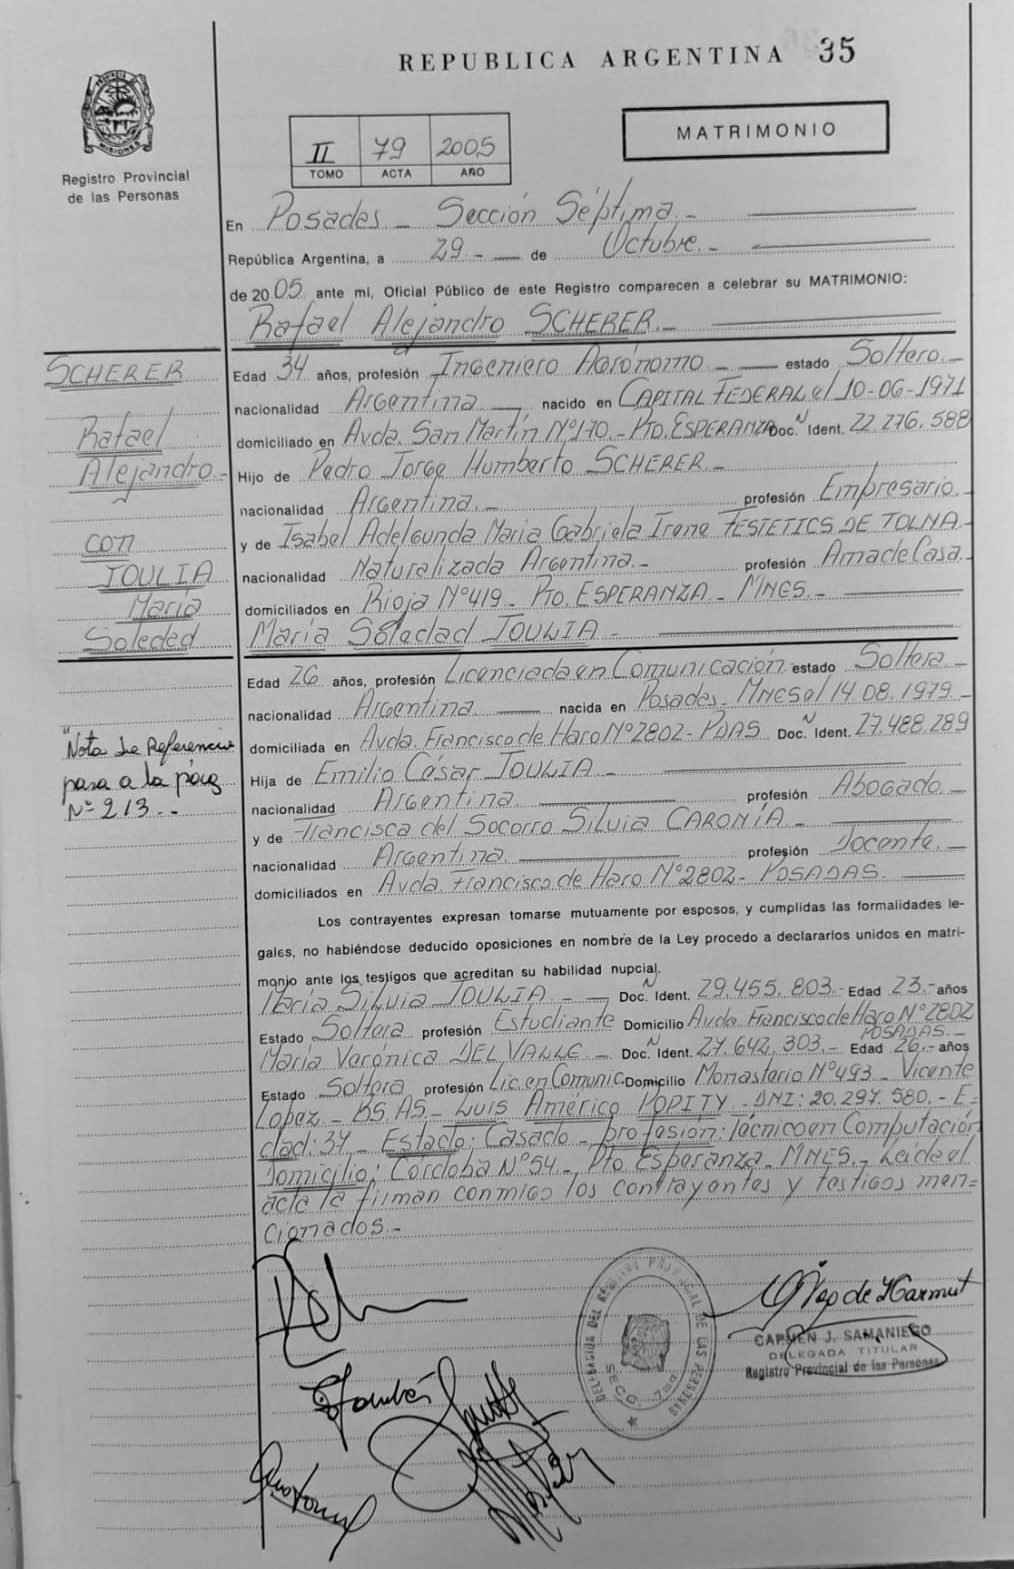 REPUBLICA ARGENTINA 35
PROVINCIA DE MISIONES
Registro Provincial
de las Personas
II 79 2005
TOMO ACTA AÑO
MATRIMONIO
En Posadas - Sección Séptima.-
República Argentina, a 29 - de Octubre.-
de 2005 ante mi, Oficial Público de este Registro comparecen a celebrar su MATRIMONIO:
Rafael Alejandro SCHERER.-
SCHERER
Rafael
Alejandro-
con
JOULIA
María
Soledad
Edad 34 años, profesión Ingeniero Agrónomo.- estado Soltero.-
nacionalidad Argentina nacido en CAPITAL FEDERAL el 10-06-1971
domiciliado en Avda. San Martín Nº170.- Pto. ESPERANZA Doc. N Ident. 22.276.588
Hijo de Pedro Jorge Humberto SCHERER.-
nacionalidad Argentina.- profesión Empresario.-
y de Isabel Adelgunda Maria Gabriela Irene FESTETICS DE TOLNA.-
nacionalidad Naturalizada Argentina.- profesión Ama de Casa.-
domiciliados en Rioja Nº419 - Pto. ESPERANZA - MNES.-
María Soledad JOULIA.-
Edad 26 años, profesión Licenciada en Comunicación estado Soltera.-
nacionalidad Argentina nacida en Posadas, MNES el 14.08.1979.-
domiciliada en Avda. Francisco de Haro Nº2802 - PDAS Doc. N Ident. 27.488.289
Hija de Emilio César JOULIA.-
nacionalidad Argentina profesión Abogado.-
y de Francisca del Socorro Silvia CARONÍA.-
nacionalidad Argentina. profesión Docente.-
domiciliados en Avda. Francisco de Haro Nº2802 - POSADAS.
"Nota de Referencia
pasa a la pág
Nº 213.-
Los contrayentes expresan tomarse mutuamente por esposos, y cumplidas las formalidades le-
gales, no habiéndose deducido oposiciones en nombre de la Ley procedo a declararlos unidos en matri-
monio ante los testigos que acreditan su habilidad nupcial.
María Silvia JOULIA - Doc. N Ident. 29.455.803.- Edad 23.- años
Estado Soltera profesión Estudiante Domicilio Avda. Francisco de Haro Nº2802
POSADAS.-
María Verónica DEL VALLE - Doc. N Ident. 27.642.303.- Edad 26.- años
Estado Soltera profesión Lic. en Comunic. Domicilio Monasterio Nº493 - Vicente
Lopez - BS. AS.- Luis Américo POPITY - DNI: 20.297.580.- E-
dad: 37 - Estado: Casado - profesión: Técnico en Computación
Domicilio: Cordoba Nº54 - Pto. Esperanza - MNES.- Leída el
acta la firman conmigo los contrayentes y testigos men=
cionados.-
DELEGACION DEL REGISTRO PROVINCIAL DE LAS PERSONAS
SECC. 7ma
de Harmut
CARMEN J. SAMANIEGO
DELEGADA TITULAR
Registro Provincial de las Personas